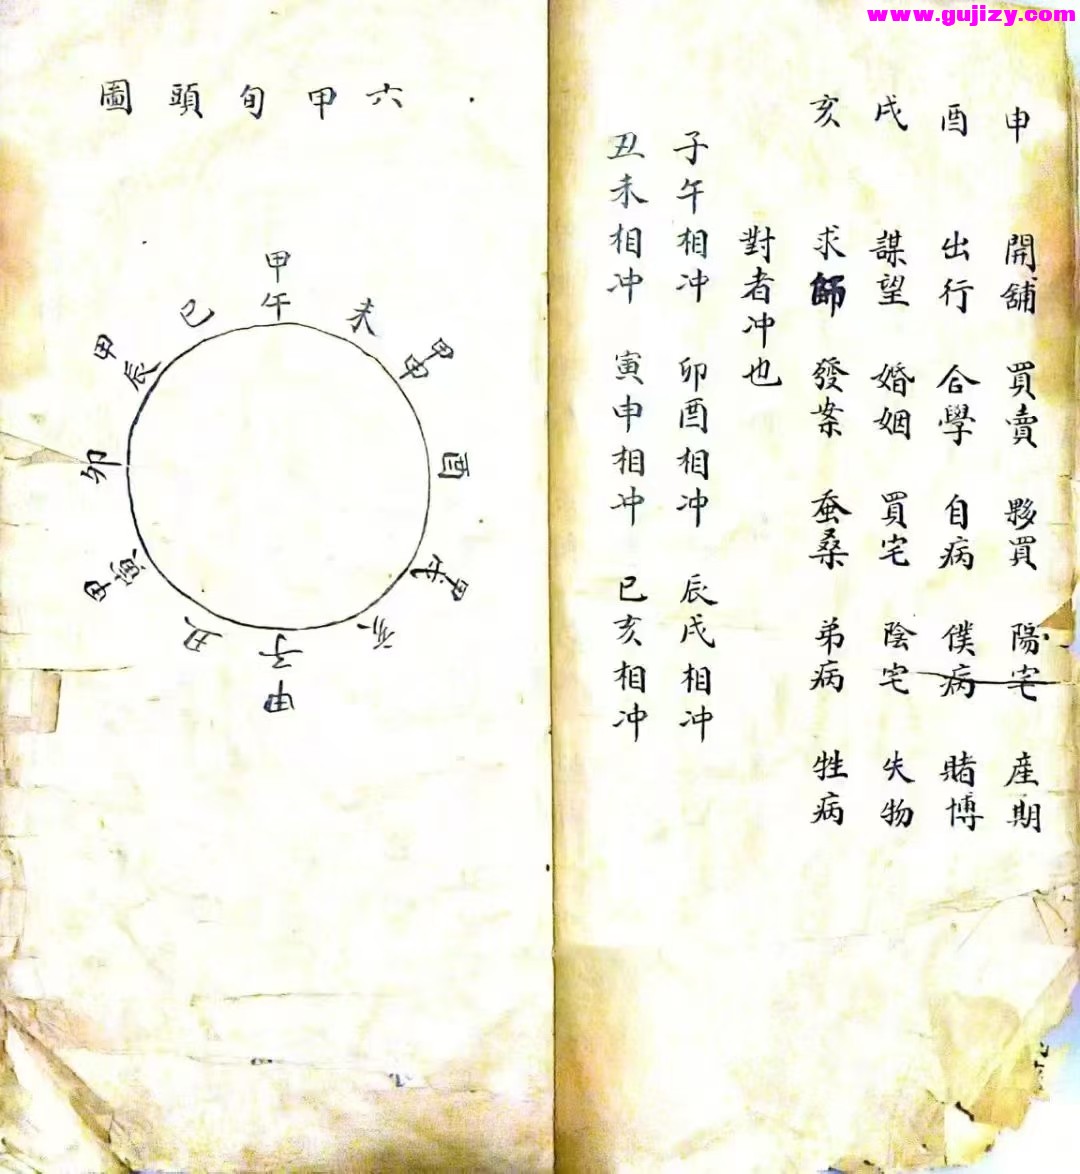 www.gujizy.com
申 開舖 買賣 夥買 陽宅 產期
酉 出行 合學 自病 僕病 賭博
戌 謀望 婚姻 買宅 陰宅 失物
亥 求師 發案 蚕桑 弟病 牲病
對者冲也
子午相冲 卯酉相冲 辰戌相冲
丑未相冲 寅申相冲 巳亥相冲
六甲旬頭圖
甲午
未
甲申
酉
甲戌
亥
甲子
丑
甲寅
卯
甲辰
巳